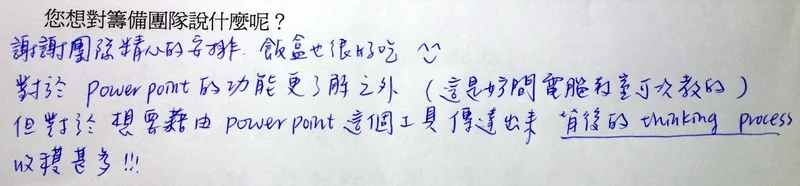 您想對籌備團隊說什麼呢？
謝謝團隊精心的安排. 飯盒也很好吃 ツ
對於 powerpoint 的功能更了解之外 (這是坊間電腦教室可以教的)
但對於想要藉由 powerpoint 這個工具傳達出來 背後的 thinking process
收穫甚多!!!